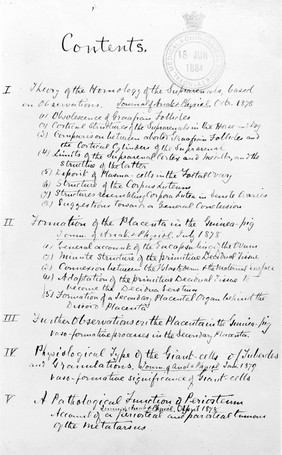 Contents.
18 JUN
1884
I. Theory of the Homology of the Suprarenals, based
on Observations. Journal of Anat & Physiol. Oct. 1878
(1) Obsolescence of Graafian Follicles
(2) Cortical Structure of the Suprarenals in the Horse and Dog
(3) Comparison between aborted Graafian Follicles and
the Cortical Cylinders of the Suprarenal
(4) Limits of the Suprarenal Cortex and Medulla, and the
structure of the latter
(5) Deposit of Plasma-cells in the Foetal Ovary
(6) Structure of the Corpus Luteum
(7) Structures resembling Corpora Lutea in Ovaries
(8) Suggestions towards a General Conclusion
II. Formation of the Placenta in the Guinea-pig
Journ. of Anat & Physiol July 1878
(1) General account of the Encapsuling of the Ovum
(2) Minute Structure of the primitive Decidual Tissue
(3) Connexion between the Blastoderm & the Uterine surface
(4) Adaptation of the primitive Decidual Tissue to
become the Decidua Serotina
(5) Formation of a Secondary Placental Organ behind the
Discoid Placenta
III Further Observations on the Placenta in the Guinea-pig
vaso-formative processes in the Secondary Placenta.
IV. Physiological Type of the Giant-cells of Tubercles
and Granulations. Journ. of Anat & Physiol Jan 1879
vaso-formative significance of Giant-cells
V A Pathological Function of Periosteum
Journ of Anat & Physiol, April 1878
Account of a periosteal and parosteal tumour
of the Metatarsus